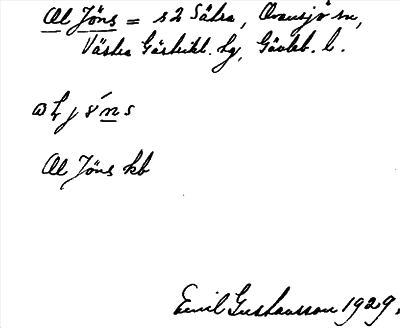 Ol Jöns = s 2 Sälra, Ovansjö sn,
Västra Gästrikl. hg, Gävleb. l.
Ol Jöns kb
Emil Gustavsson 1929.